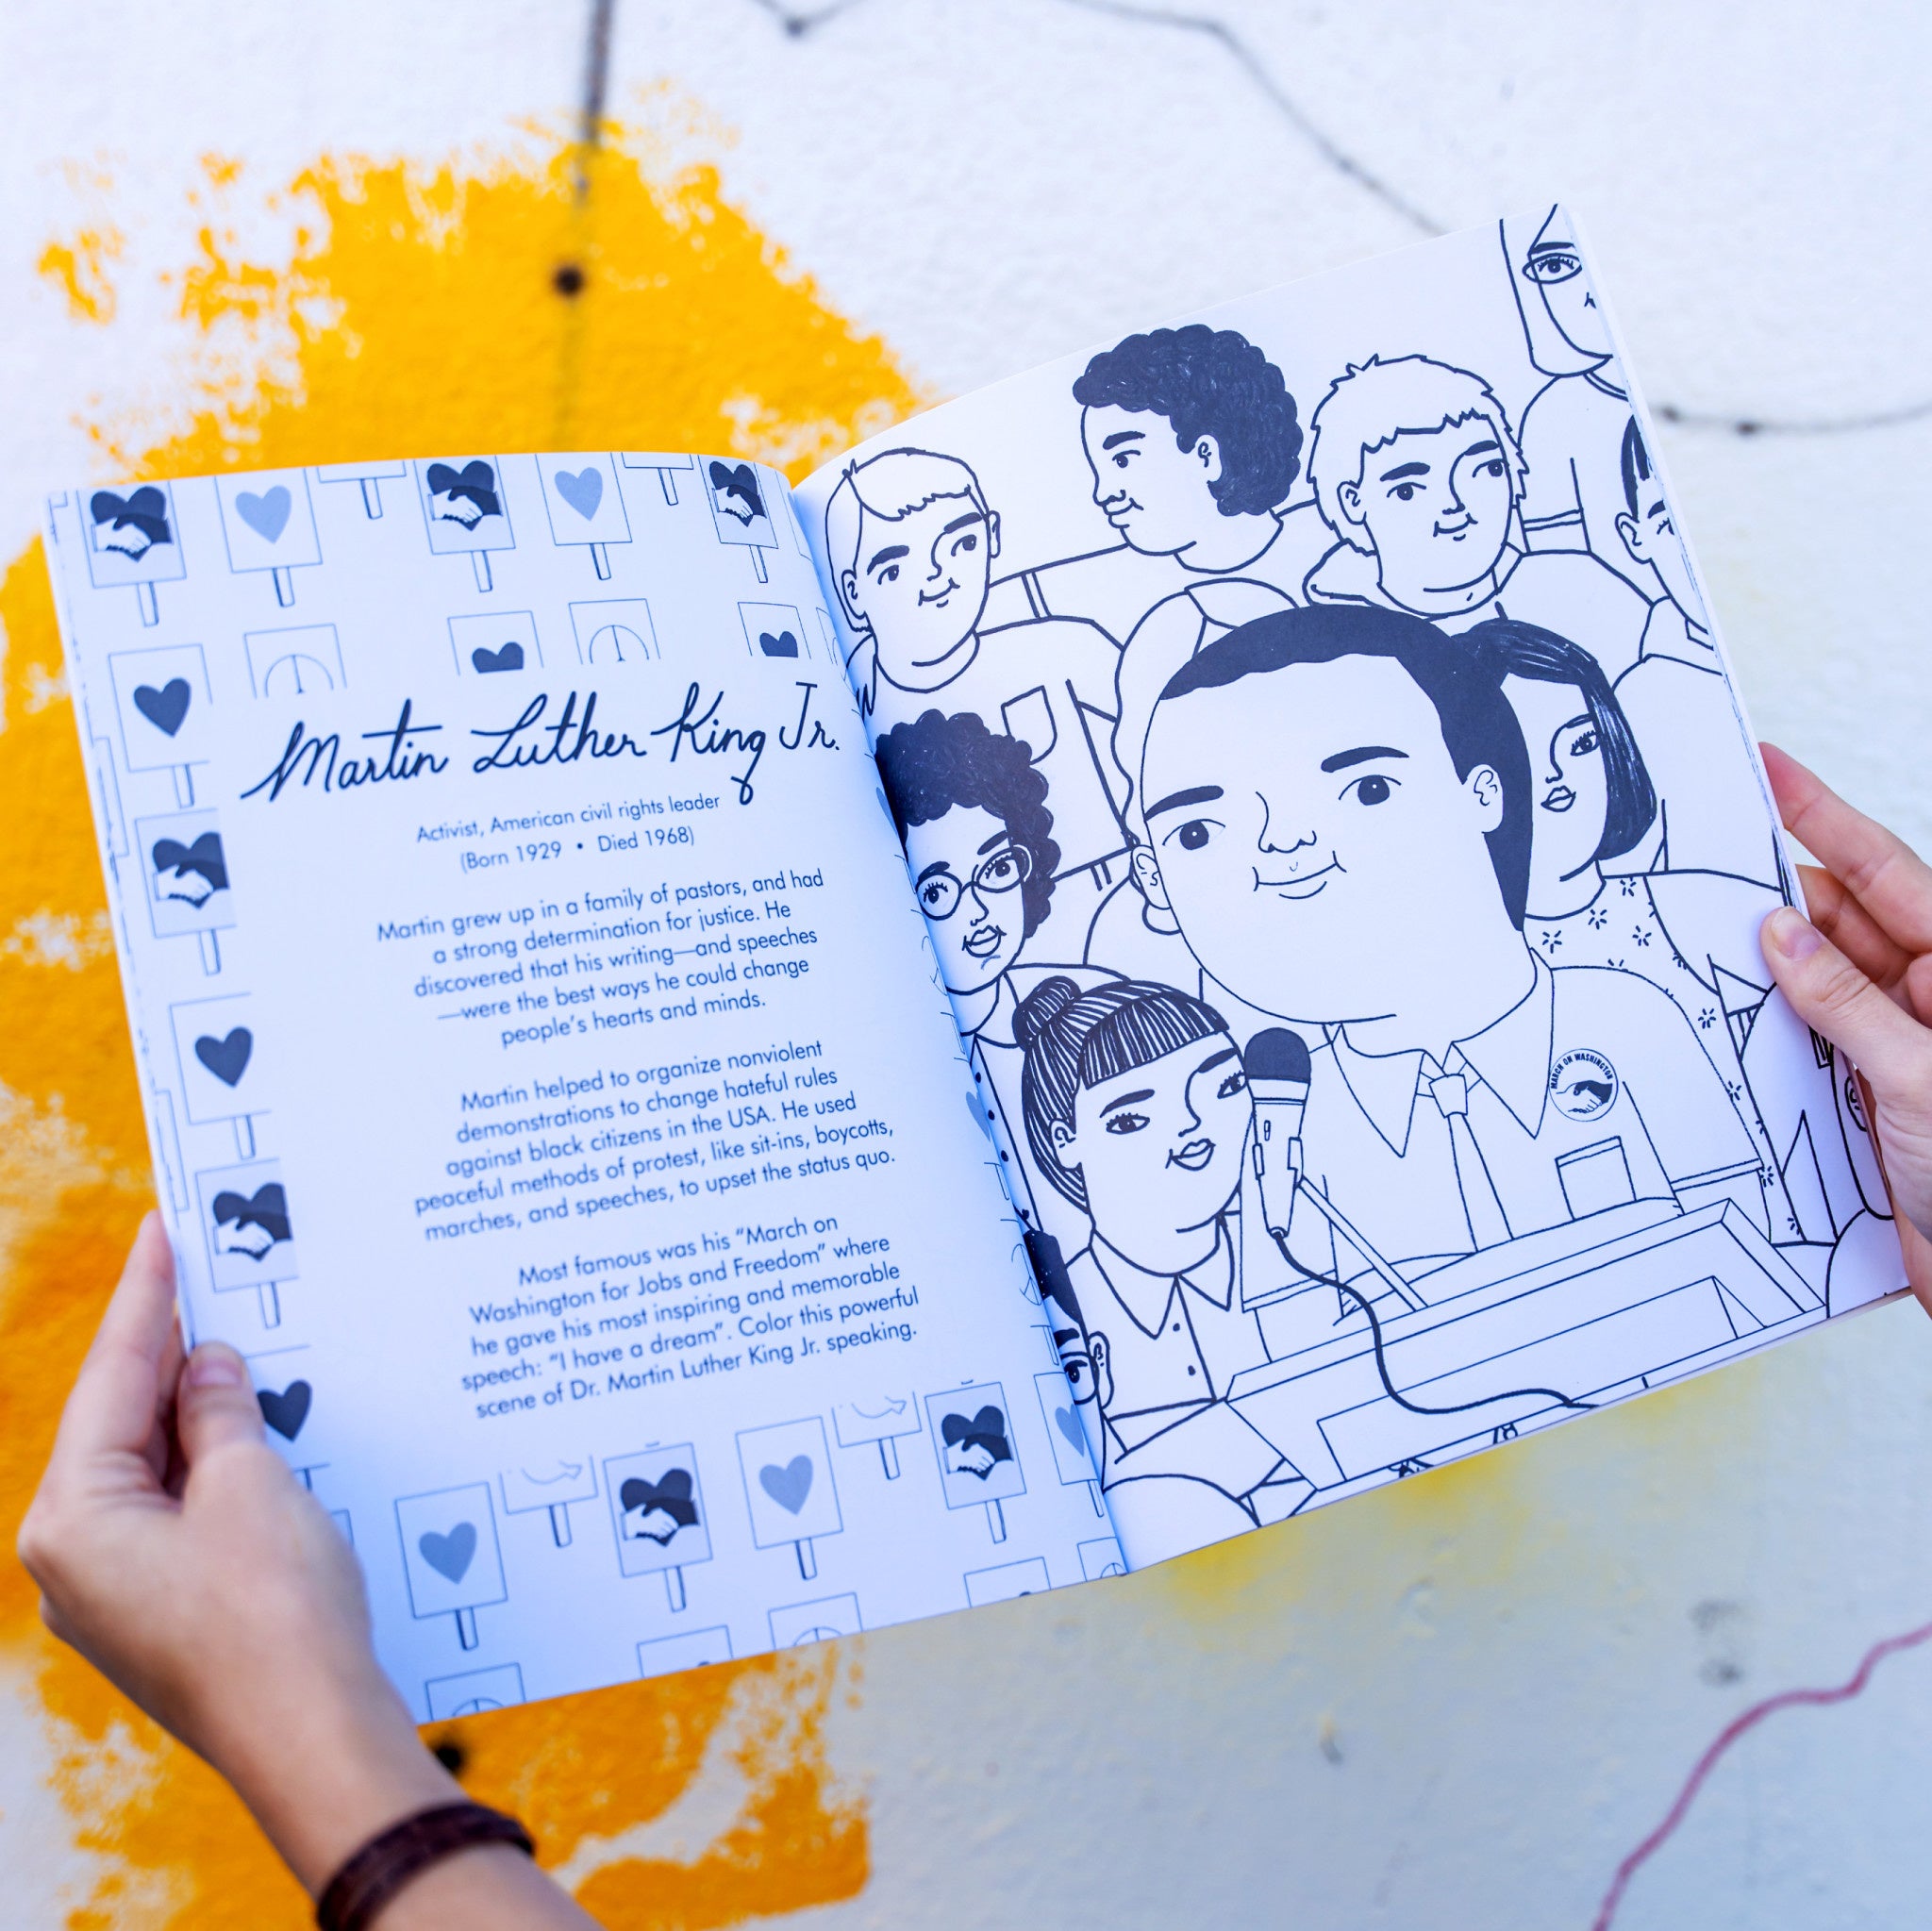 Martin Luther King Jr.
Activist, American civil rights leader
(Born 1929 • Died 1968)
Martin grew up in a family of pastors, and had
a strong determination for justice. He
discovered that his writing—and speeches
—were the best ways he could change
people's hearts and minds.
Martin helped to organize nonviolent
demonstrations to change hateful rules
against black citizens in the USA. He used
peaceful methods of protest, like sit-ins, boycotts,
marches, and speeches, to upset the status quo.
Most famous was his "March on
Washington for Jobs and Freedom" where
he gave his most inspiring and memorable
speech: "I have a dream". Color this powerful
scene of Dr. Martin Luther King Jr. speaking.
MARCH ON WASHINGTON